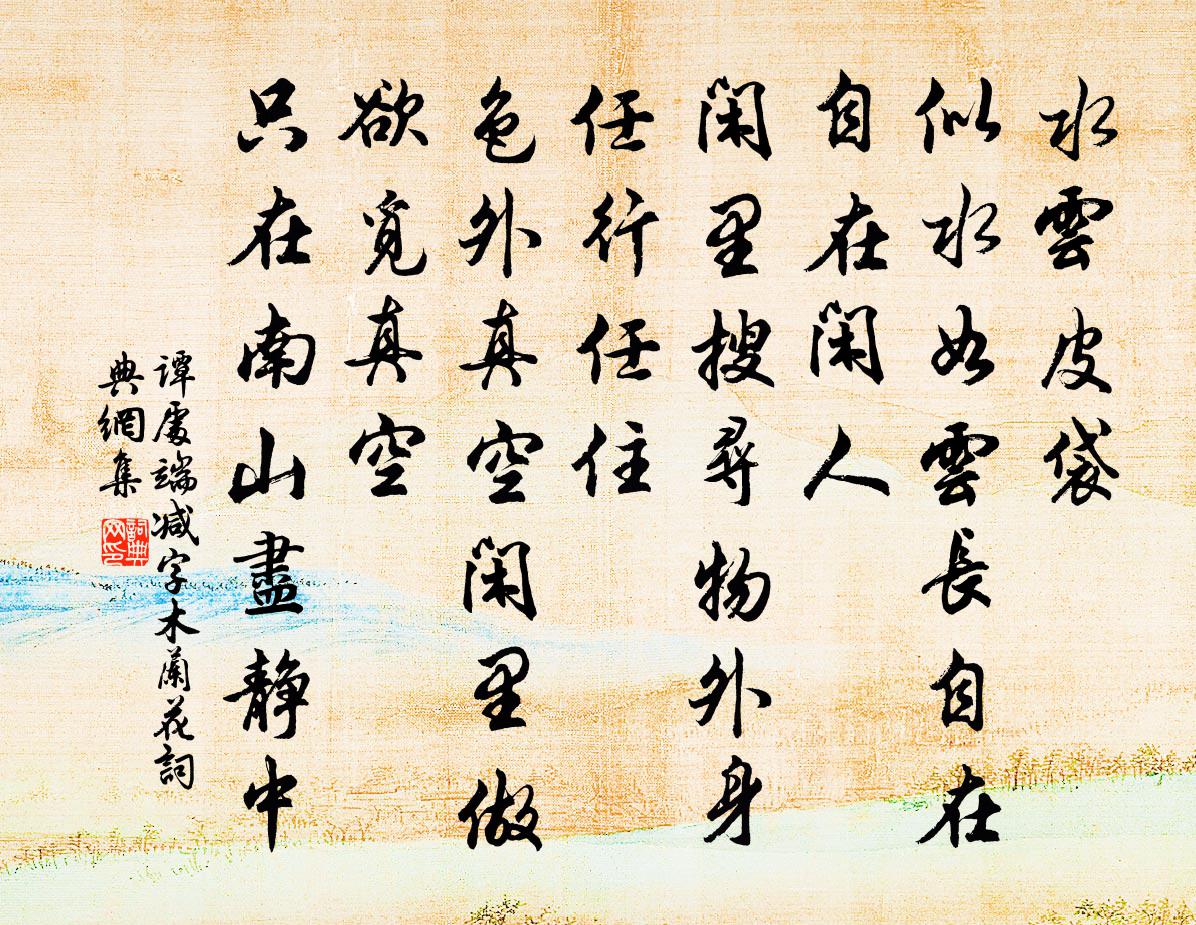 水雲皮袋
似水如雲長自在
自在閑人
閑里搜尋物外身
任行任住
色外真空閑里做
欲覓真空
只在南山盡静中
譚處端减字木蘭花詞
典網集
詞典
网印